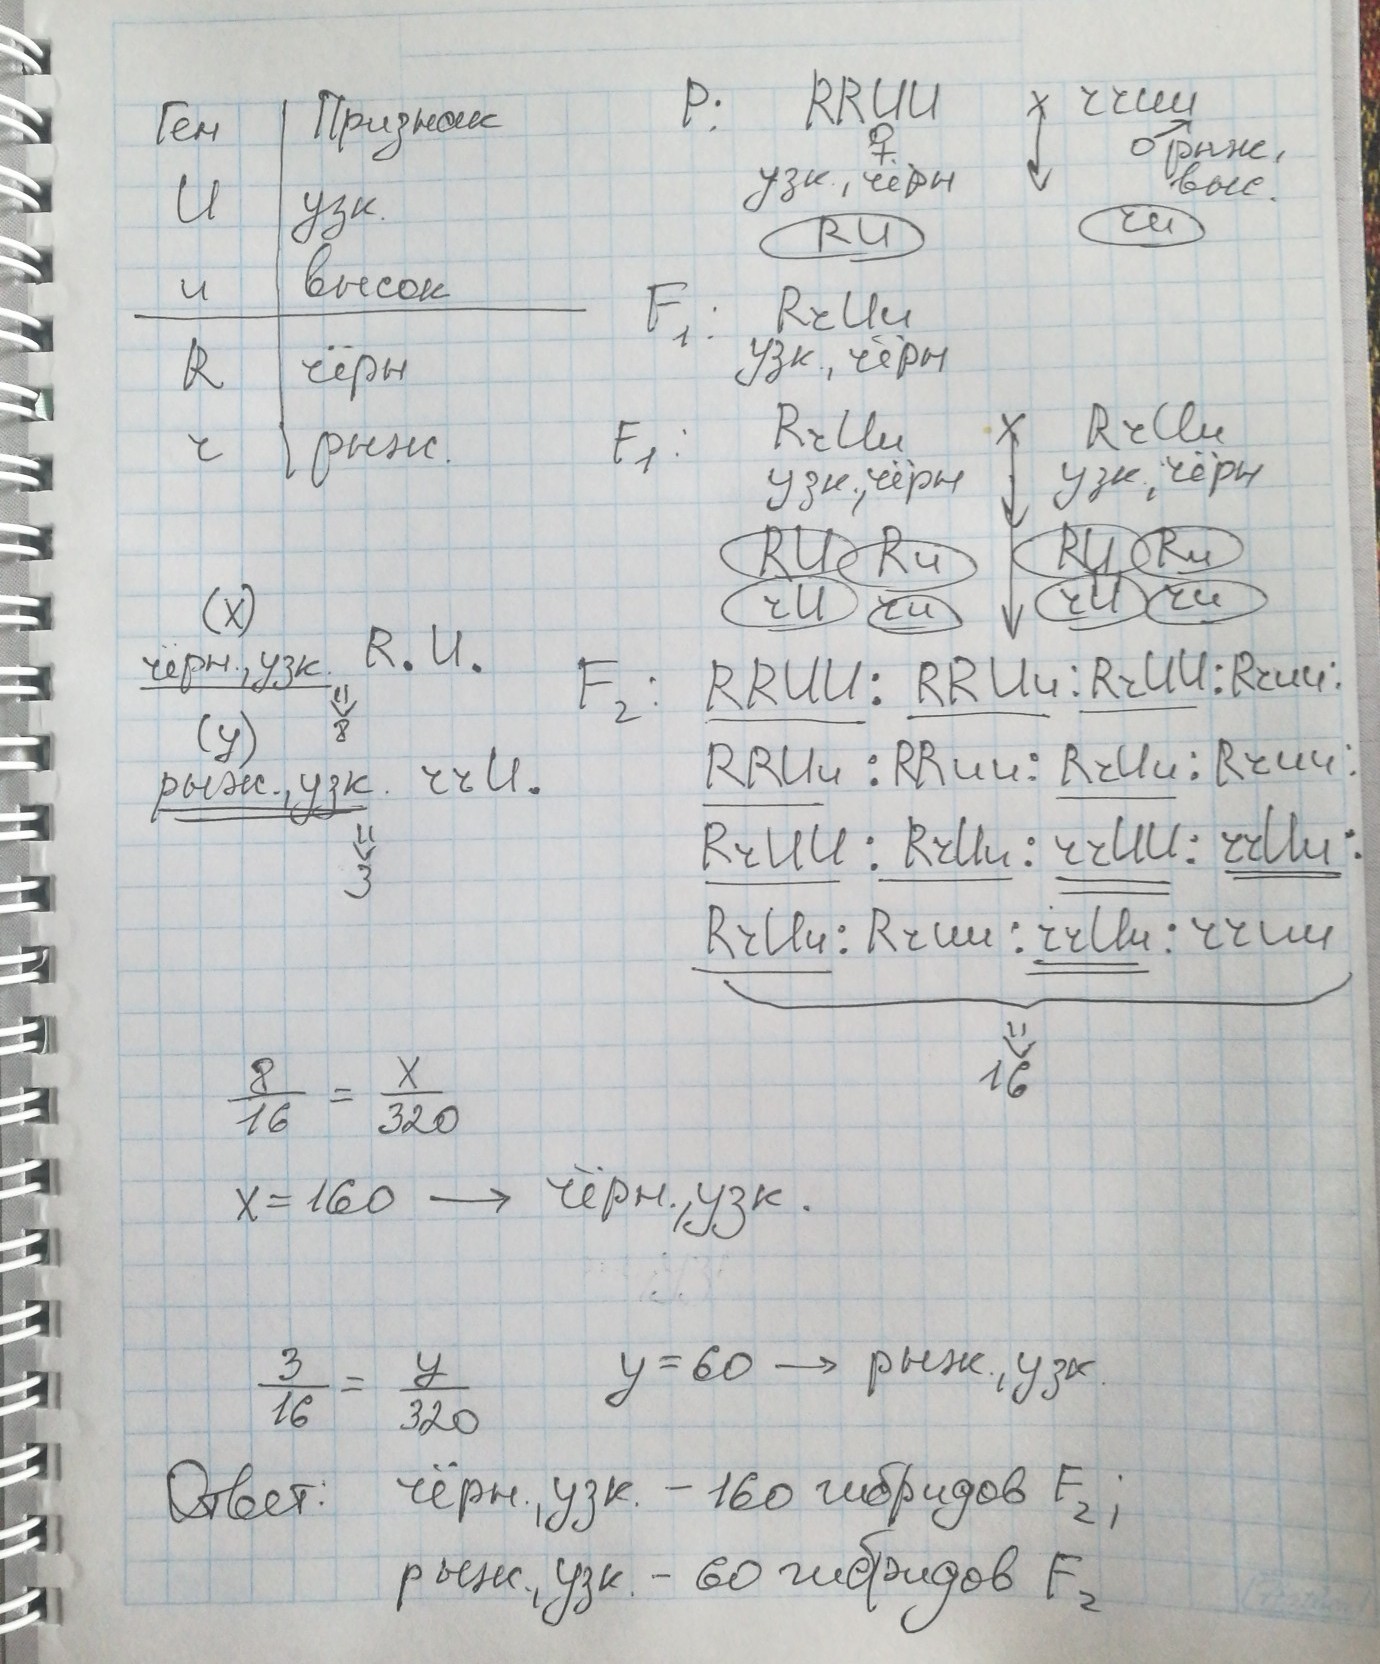 Ген Признак
U узк.
u высок
R чёрн
r рыж.
P: RRUU x rruu
♀ ♂ рыж.,
узк., чёрн выс.
RU ru
F1: RrUu
узк., чёрн
F1: RrUu x RrUu
узк., чёрн узк., чёрн
RU Ru RU Ru
rU ru rU ru
(x)
чёрн., узк. R.U.
8
(y)
рыж., узк. rrU.
3
F2: RRUU : RRUu : RrUU : Rruu :
RRUu : RRuu : RrUu : Rruu :
RrUU : RrUu : rrUU : rrUu :
RrUu : Rruu : rrUu : rruu
16
8/16 = x/320
x = 160 → чёрн., узк.
3/16 = y/320 y = 60 → рыж., узк.
Ответ: чёрн., узк. – 160 гибридов F2;
рыж., узк. – 60 гибридов F2